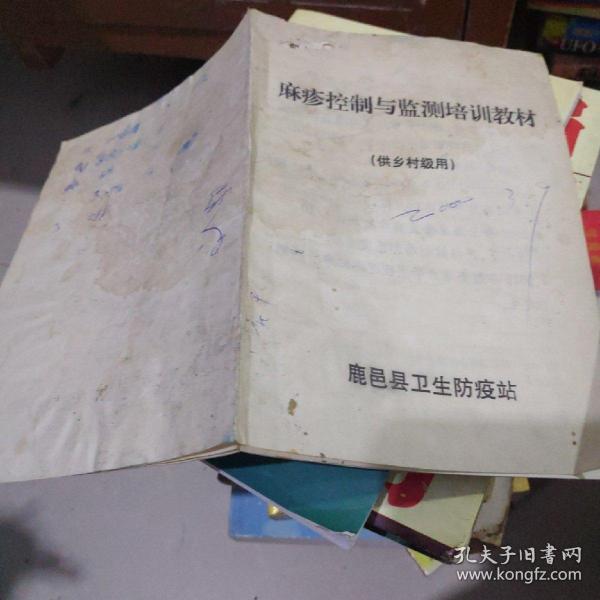 麻疹控制与监测培训教材
(供乡村级用)
2000 3.9
鹿邑县卫生防疫站
UFO
孔夫子旧书网
www.kongfz.com